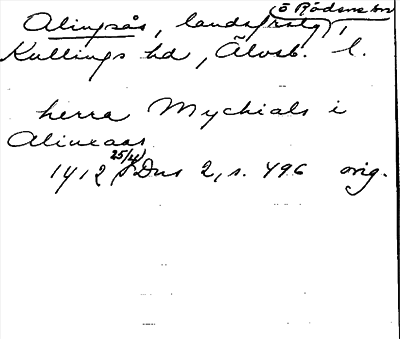 Alingsås, landsfrslg, (ö Rödene sn)
Kullings hd, Älvsb. l.
herra Mychials i
Alinxaas
1412 25/4 Dns 2, s. 496 orig.